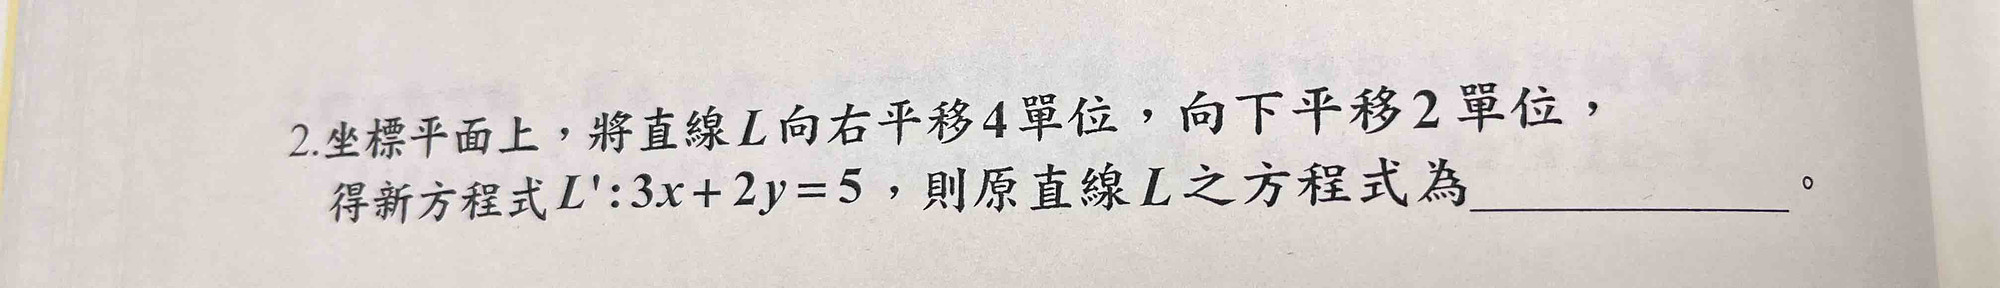 2.坐標平面上,將直線L向右平移4單位,向下平移2單位,
得新方程式L':3x+2y=5,則原直線L之方程式為________。